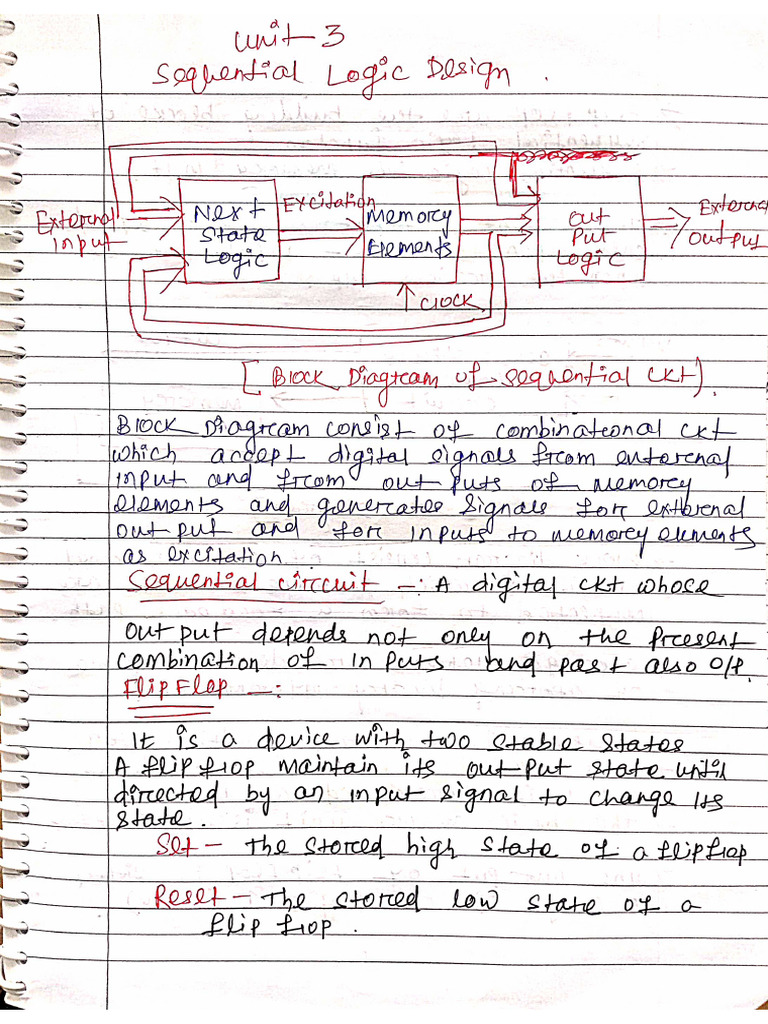 Unit-3
Sequential Logic Design.
External
Input
Next
State
Logic
Excitation
Memory
Elements
Clock
Out
Put
Logic
External
Output
[Block Diagram of sequential ckt].
Block Diagram consist of combinational ckt
which accept digital signals from external
input and from out puts of memory
elements and generates signals for external
output and for inputs to memory elements
as excitation.
Sequential circuit -: A digital ckt whose
output depends not only on the present
combination of inputs and past also O/P.
Flip Flop -:
It is a device with two stable states
A flip flop maintain its output state until
directed by an input signal to change its
state.
Set - the stored high state of a flip flop
Reset - The stored low state of a
flip flop.